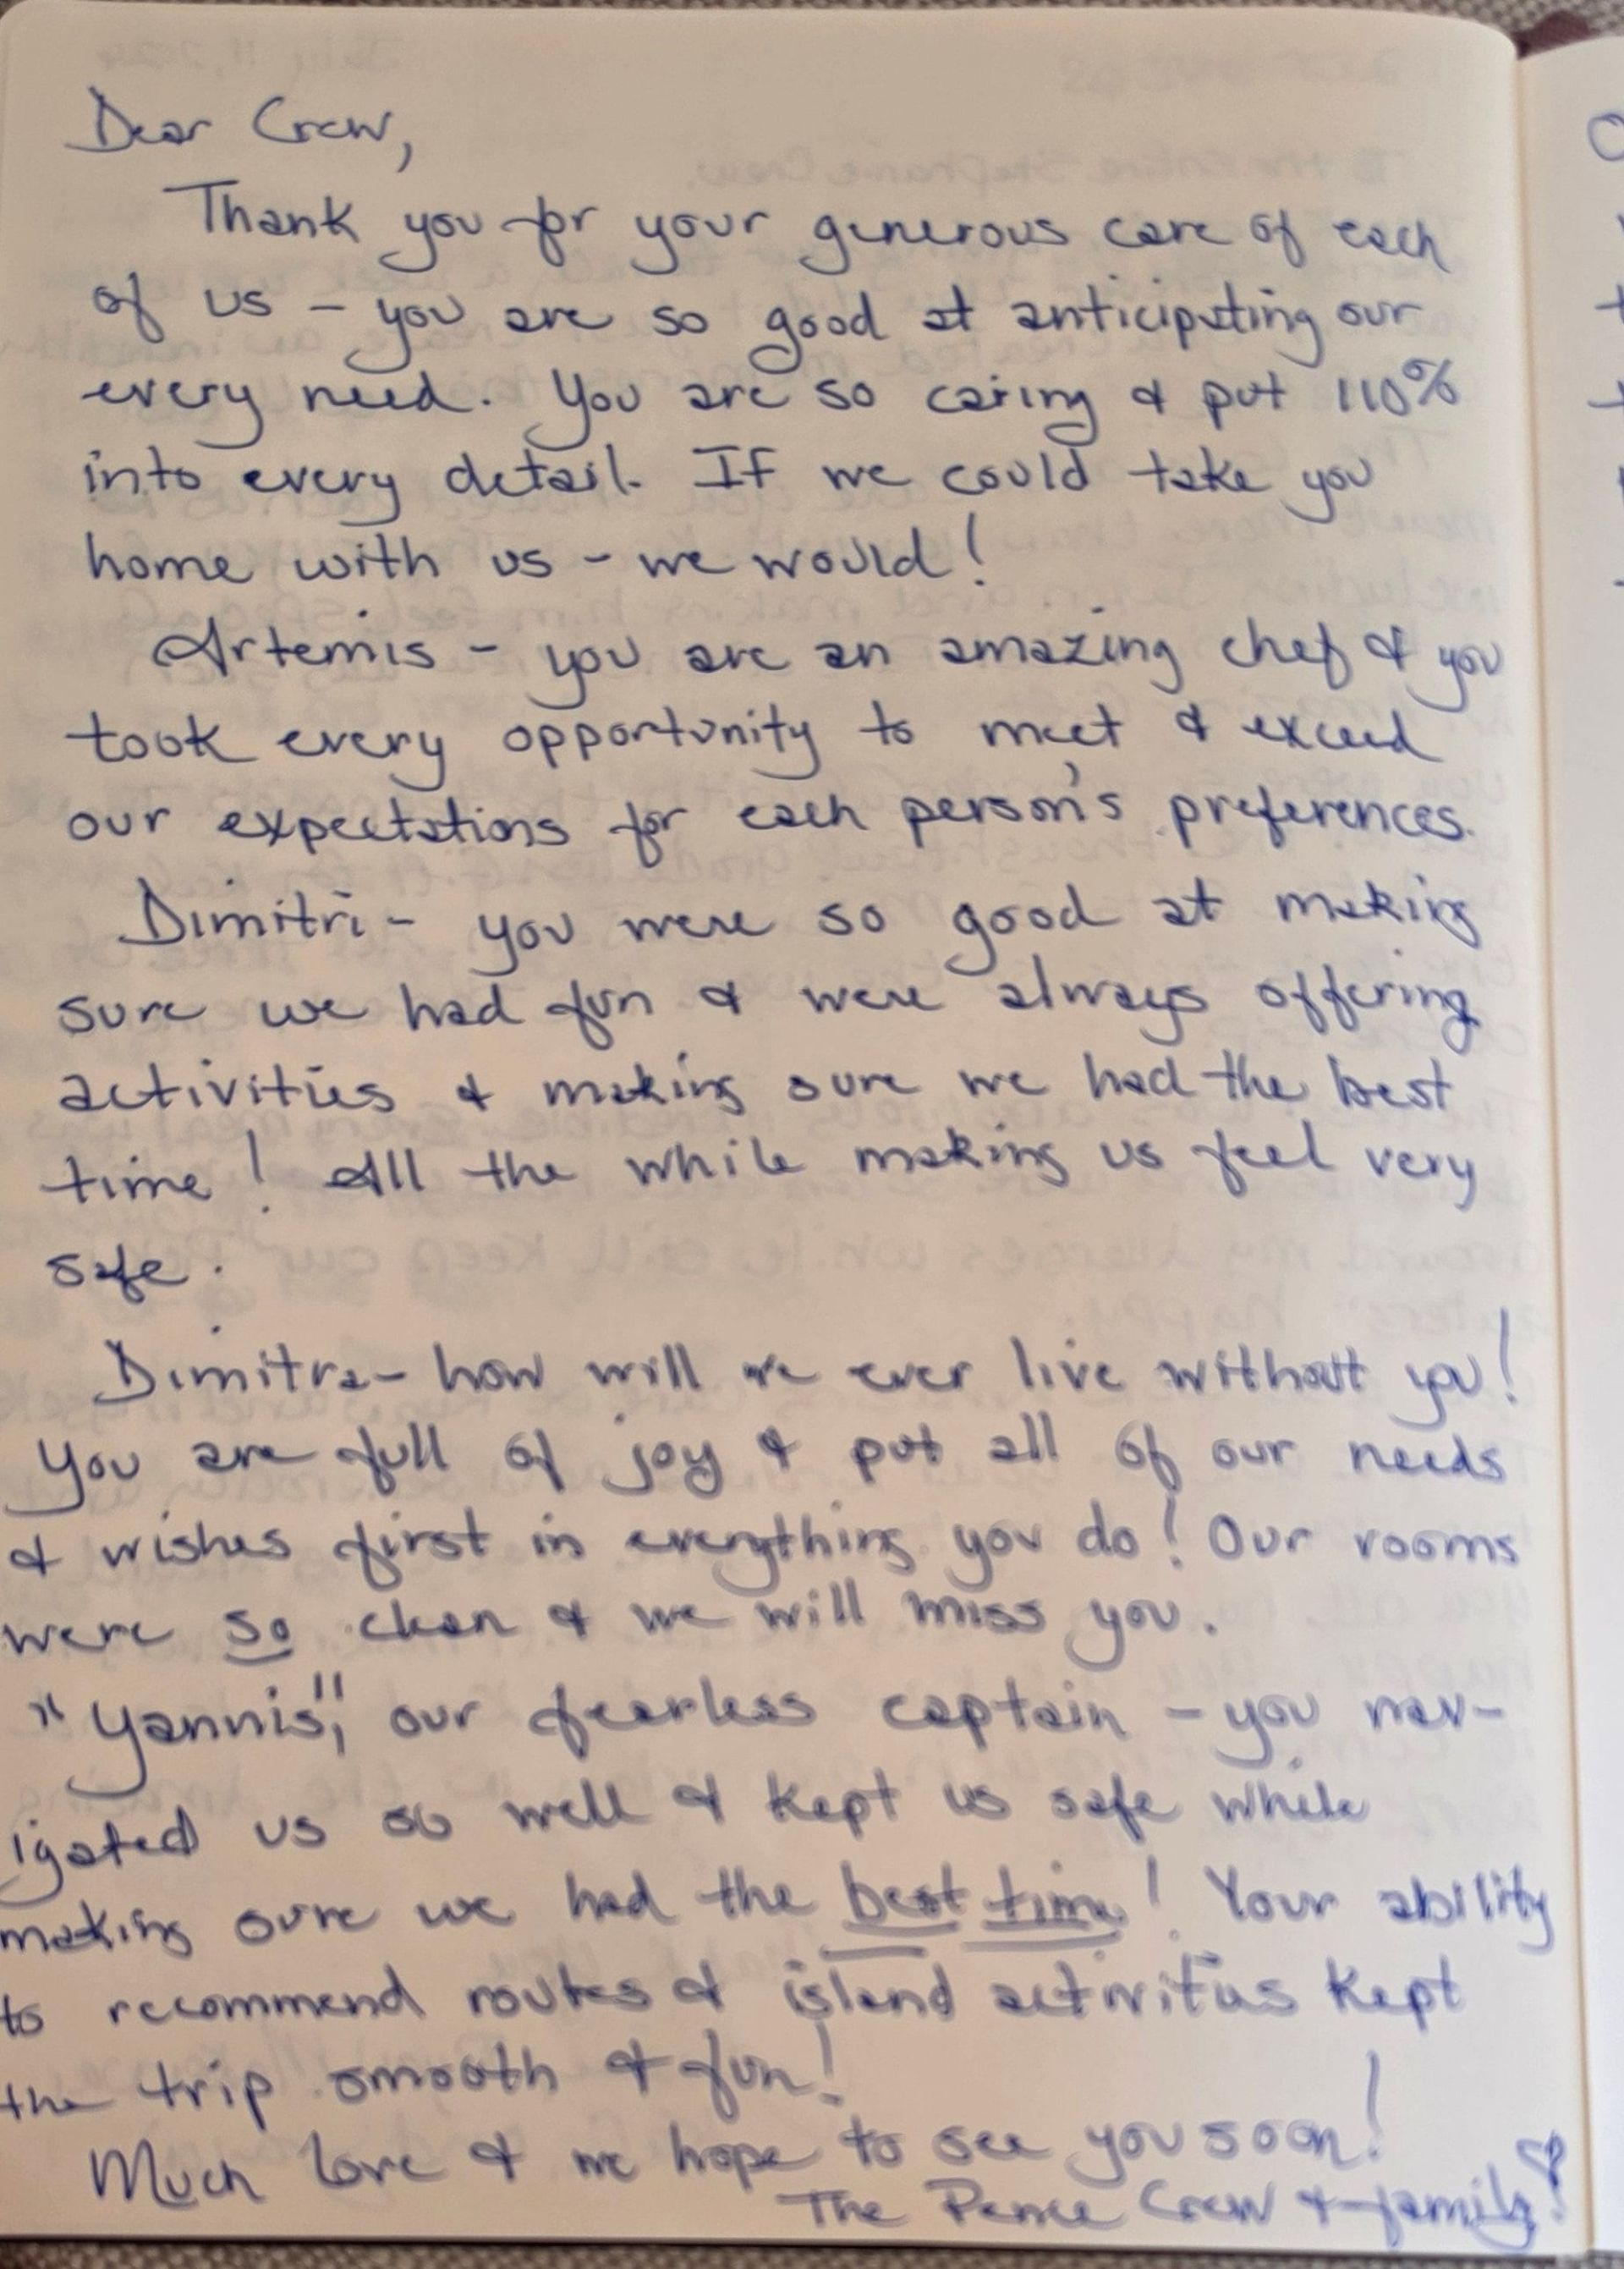 Dear Crew,
Thank you for your generous care of each
of us – you are so good at anticipating our
every need. You are so caring & put 110%
into every detail. If we could take you
home with us – we would!
Artemis – you are an amazing chef & you
took every opportunity to meet & exceed
our expectations for each person's preferences.
Dimitri – you were so good at making
sure we had fun & were always offering
activities & making sure we had the best
time! All the while making us feel very
safe.
Dimitra – how will we ever live without you!
You are full of joy & put all of our needs
& wishes first in everything you do! Our rooms
were so clean & we will miss you.
"Yannis", our fearless captain – you nav-
igated us so well & kept us safe while
making sure we had the best time! Your ability
to recommend routes & island activities kept
the trip smooth & fun!
Much love & we hope to see you soon!
The Crew & family